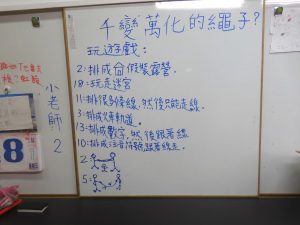 千變萬化的繩子?
玩遊戲:
2:排成 假裝露營.
18:玩走迷宮
11:排很多條線,然後只能走線.
3:排成火車軌道.
13:排成數字,然後跟著線
10:排成注音符號,跟著線走.
2:
5:
小老師
2
8